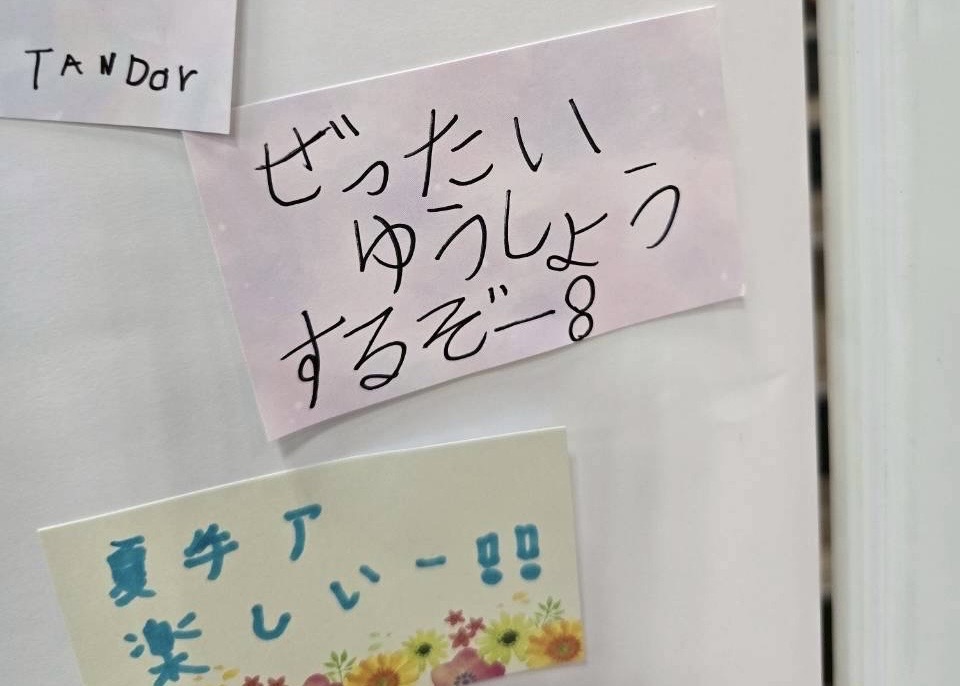 TANDar
ぜったい
ゆうしょう
するぞー8
夏牛ア
楽しいー!!